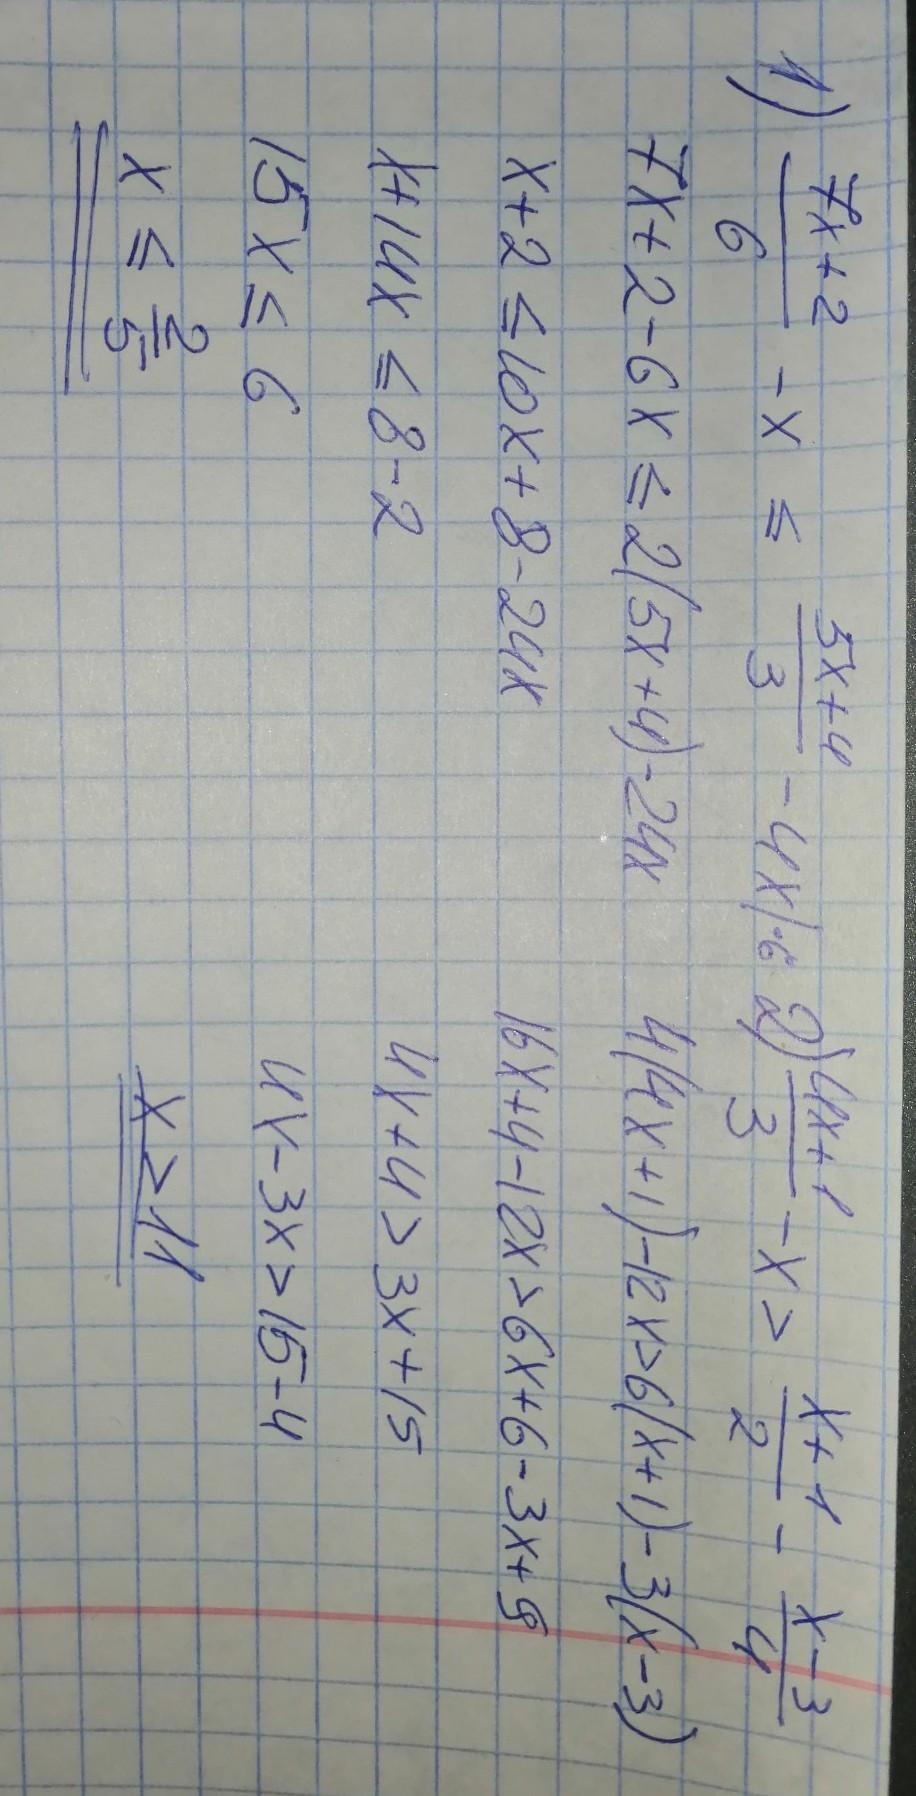 1) (7x+2)/6 - x ≤ (5x+4)/3 - 4x |·6
7x+2-6x ≤ 2(5x+4)-24x
x+2 ≤ 10x+8-24x
x+14x ≤ 8-2
15x ≤ 6
x ≤ 2/5
2) (4x+1)/3 - x > (x+1)/2 - (x-3)/4
4(4x+1)-12x>6(x+1)-3(x-3)
16x+4-12x>6x+6-3x+9
4x+4>3x+15
4x-3x>15-4
x>11